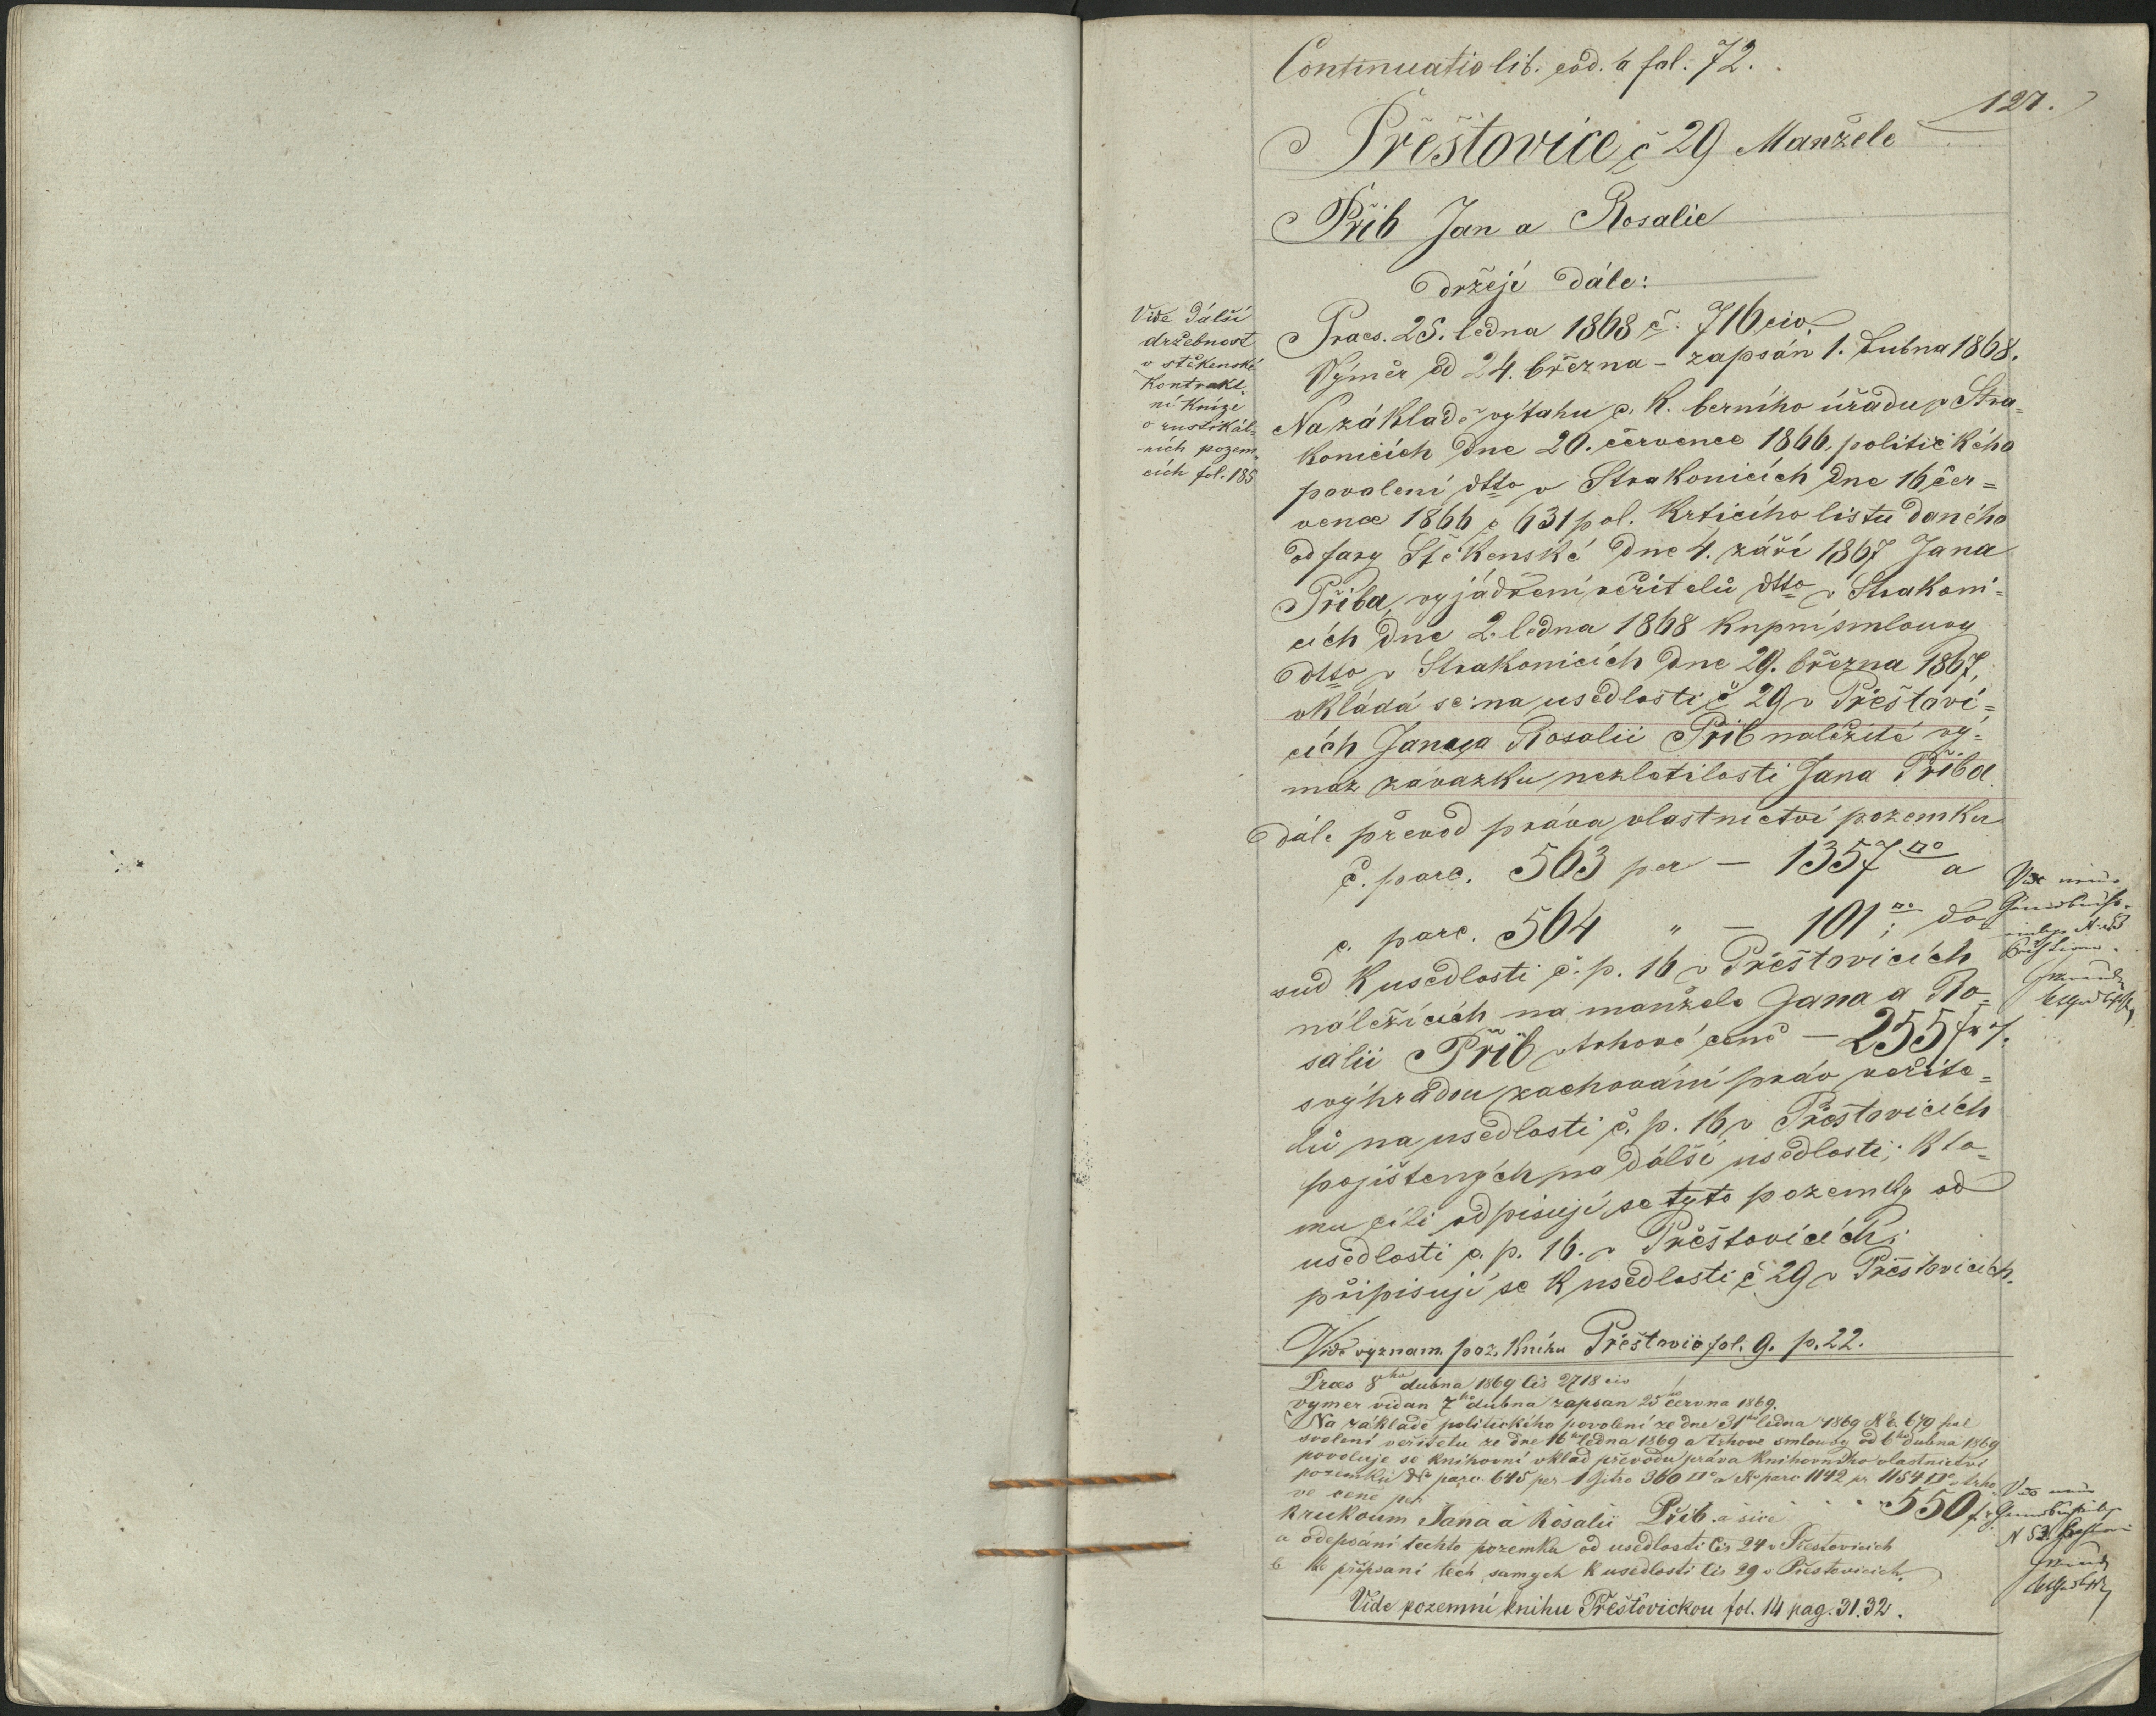 Continuatio lib. eod. a fol. 72.
127.
Přeštovice č 29 Manžele
Přib Jan a Rosalie
drzejí dále:
Vide dálší
držebnost
v stěkenské
Kontrakt
ní knize
o rustikál=
ních pozem=
cích fol. 185
Praes. 25. ledna 1868 č. 716 civ.
Výměr od 24. března – zapsán 1. Dubna 1868.
Na základě výtahu c. k. berního úřadu v Stra=
konicích dne 20. července 1866, politického
povolení dtto v Strakonicích dne 16 čer=
vence 1866 č 631 pol. Krticího listu daného
od fary Štěkenské dne 4. září 1867 Jana
Přiba, vyjádření věřitelů dtto v Strakoni=
cích dne 2. ledna 1868 kupní smlouvy
dtto v Strakonicích dne 29. března 1867,
vkládá se: na usedlosti č 29 v Přeštovi=
cích Jana a Rosalii Přib naležité vý=
maz závazku nezletilosti Jana Přiba.
Dále převod práva vlastnictví pozemku
č. parc. 563 per – 1357 □° a
č. parc. 564 " – 101 □°; do
sud k usedlosti č. p. 16 v Přeštovicích
náležících na manžele Jana a Ro=
salii Přib v trhové ceně – 255 fr
s výhradou zachování práv veřite=
lů na usedlosti č. p. 16 v Přeštovicích
pojištených na dálší usedlosti; k to=
mu cíli odpisují se tyto pozemky od
usedlosti č. p. 16. v Přěštovicích;
připisují se k usedlosti č 29 v Přeštovicích.
Vide význam. poz. knihu Přeštovic fol. 9. p. 22.
Praes 8ho dubna 1869 čís 2718 civ
vymer vidan 7ho dubna zapsan 25ho června 1869.
Na základě politického povolení ze dne 31ho ledna 1869 N. E. 679 pol
svolení veřitelu ze dne 16ho ledna 1869 a trhove smlouvy od 6ho dubna 1869
povoluje se knihovní vklad převodu práva knihovního vlastnictví
pozemků N° parc 645 per 1 Jitro 360 □° a N° parc 1142 pr 1154 □° v trho=
ve cené per 550 f
k rukoum Jana a Rosalii Přib a sice
a odepsání techto pozemku od usedlosti čís 24 v Přestovicich
b ke přípsaní tech samych k usedlosti čís 29 v Přestovicich.
Vide pozemní knihu Přeštovickou fol. 14 pag. 31. 32.